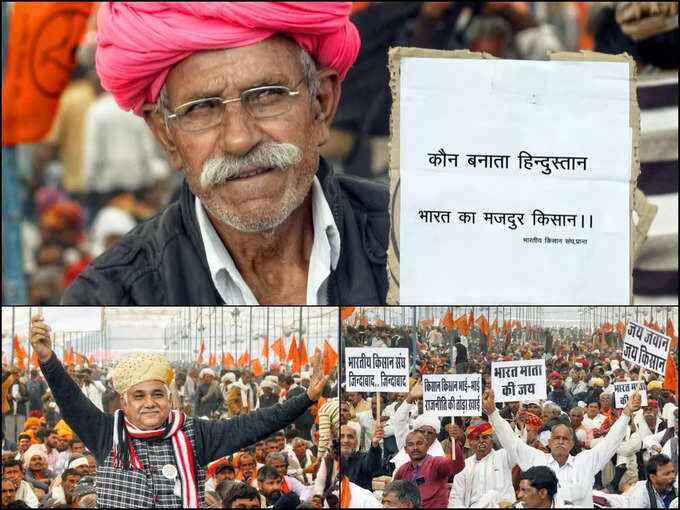 कौन बनाता हिन्दुस्तान
भारत का मजदुर किसान।।
भारतीय किसान संघ,प्राना
भारतीय किसान संघ
जिन्दाबाद .. जिन्दाबाद
किसान किसान भाई-भाई
राजनीति की तोड़ो
भारत माता
की जय
जय जवान
जय किसान
भारत
की